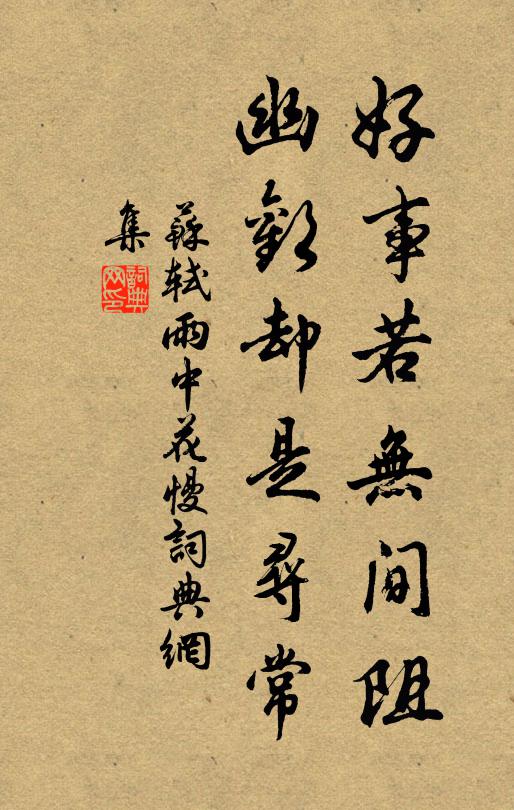 好事若無間阻
幽歡却是尋常
蘇軾雨中花慢詞典網
集
詞典网印